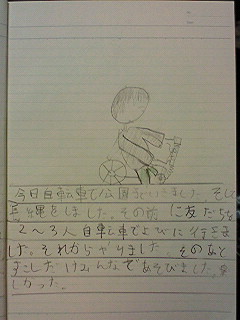 今日自転車で公園えいきました。そして
長縄をしました。その前に友だちを
2〜3人自転車でよびに行きま
した。それからやりました。そのあと
すこしだけみんなであそびました。
しかった。